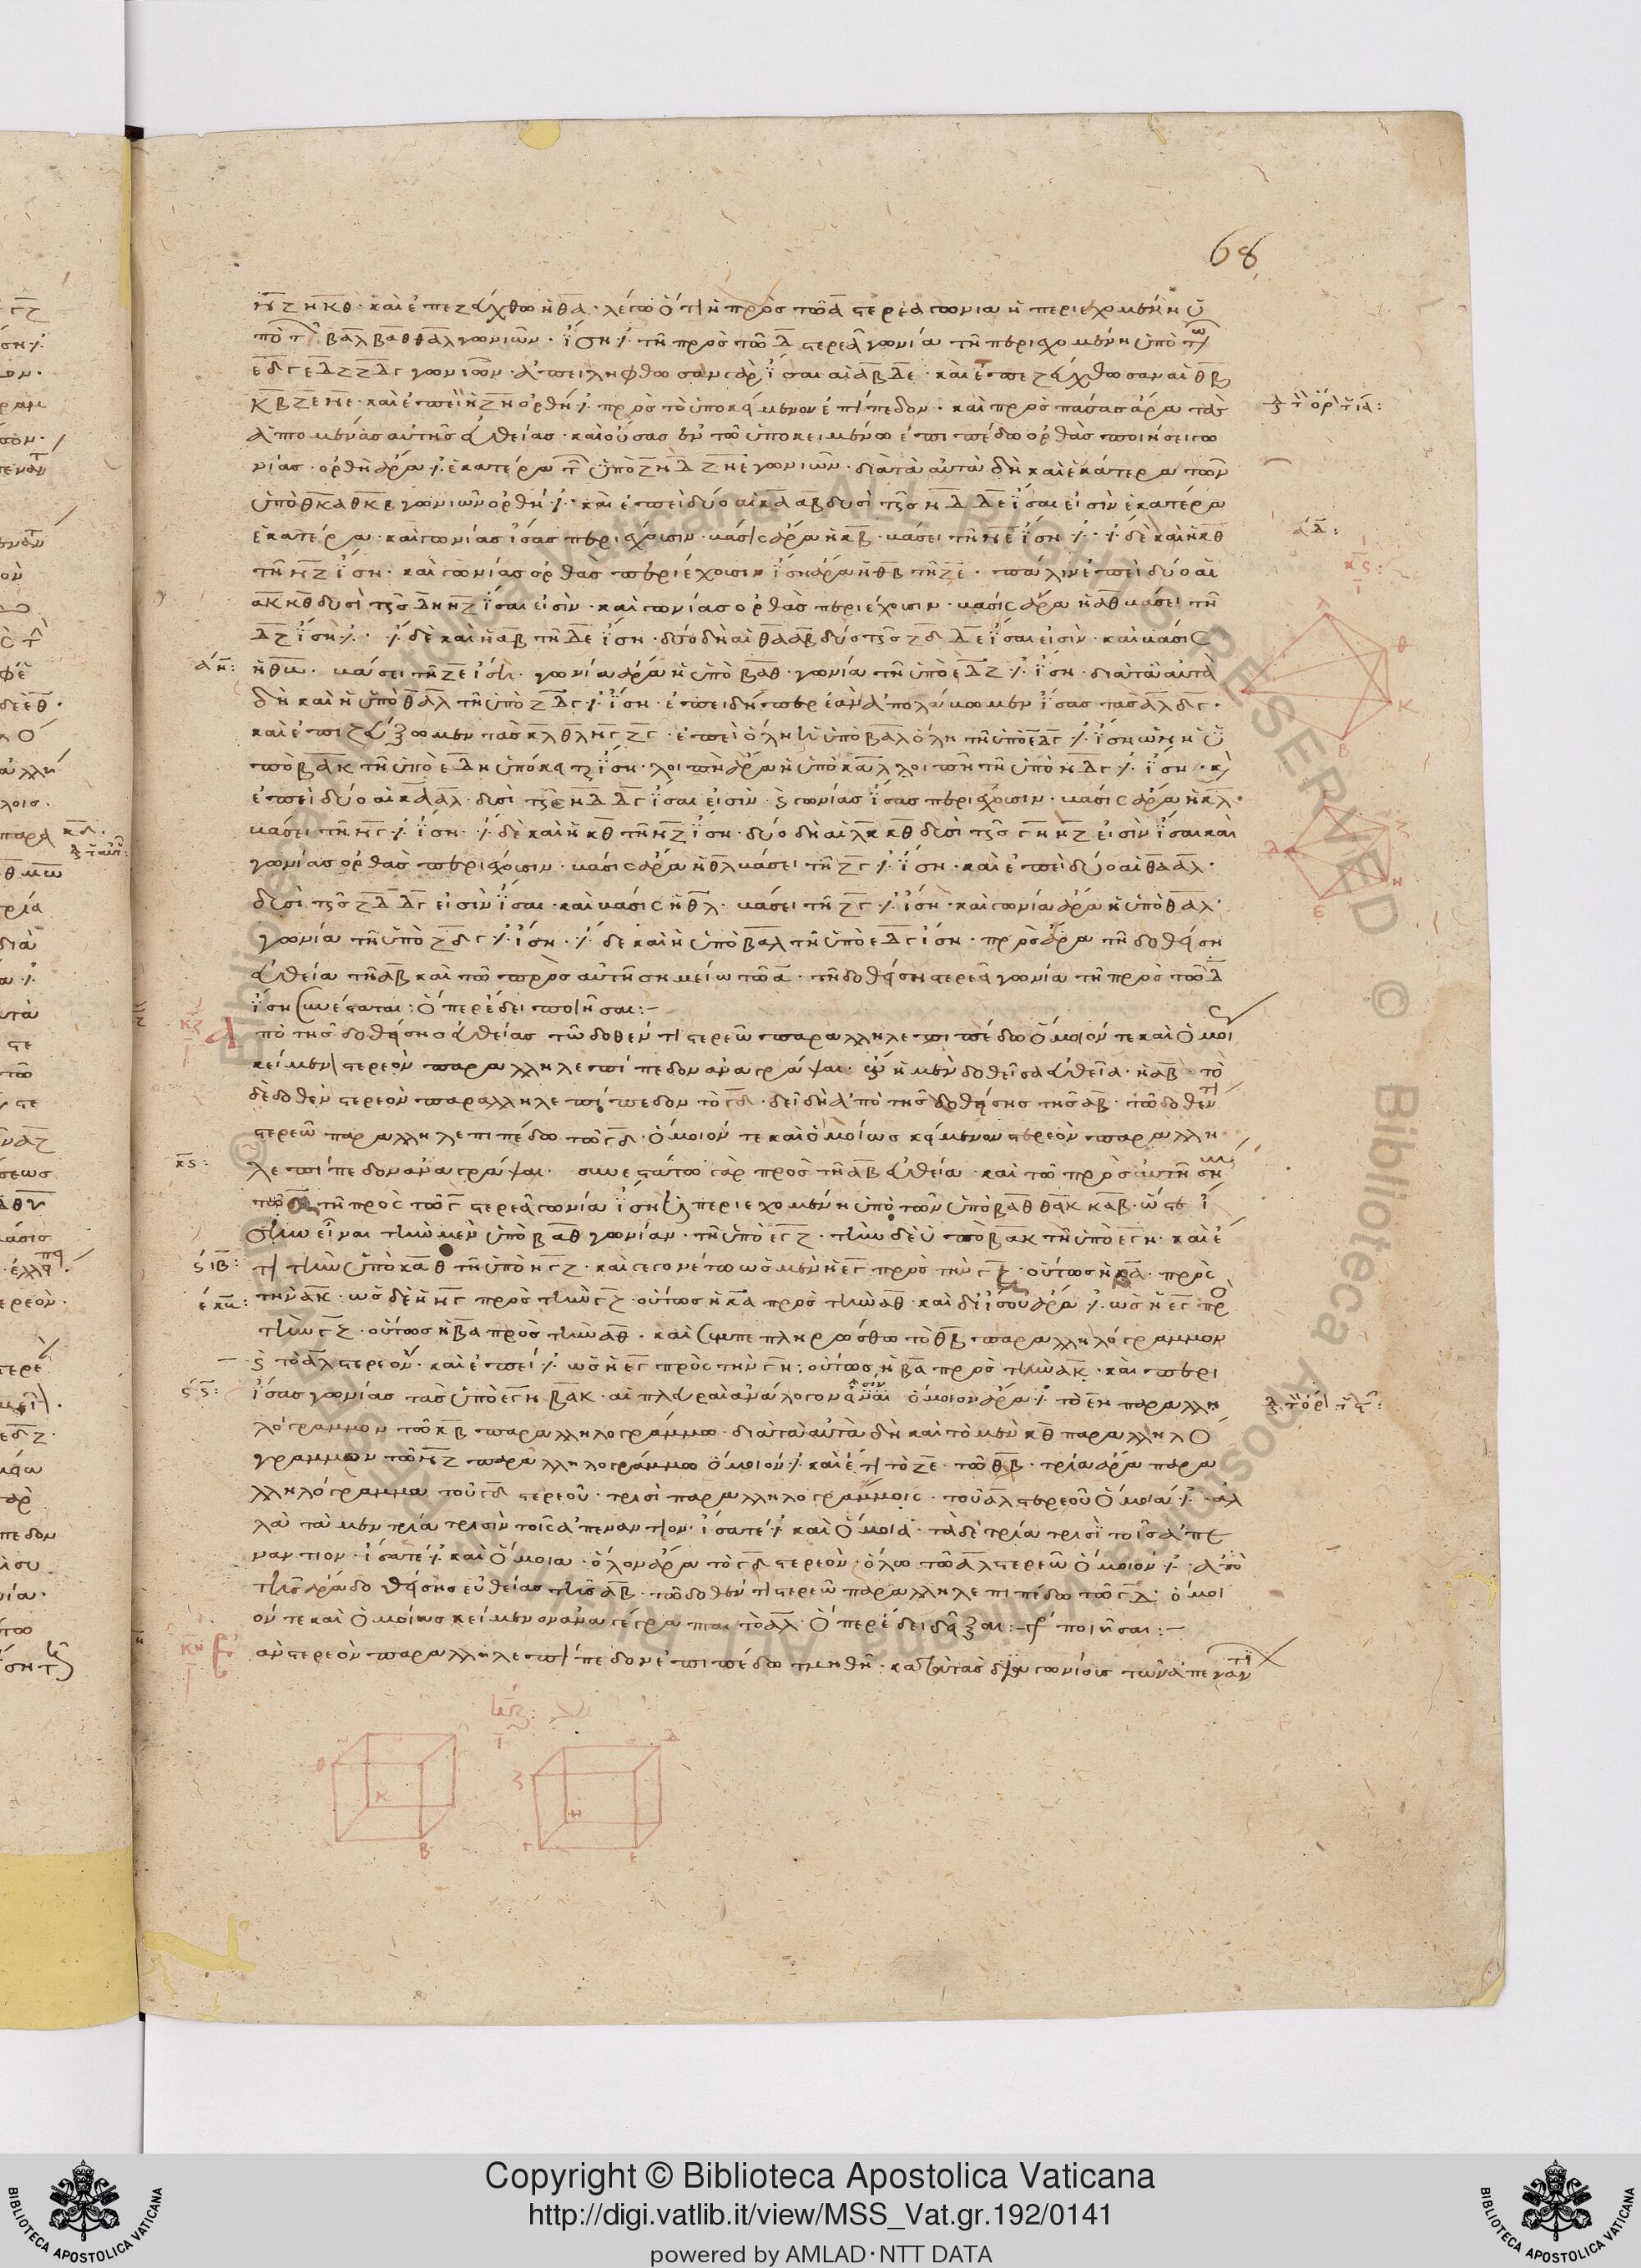 68
ΗΖ ΗΚΘ · καὶ ἐπεζεύχθω ἡ ΘΑ · λέγω ὅτι ἡ πρὸς τῶ Α στερεὰ γωνία ἡ περιεχομένη ὑ
πὸ τ ΒΑΛ ΒΑΘ ΘΑΛ γωνιῶν · ἴση τῆ πρὸς τῶ Δ στερεᾶ γωνία τῆ περιεχομένη ὑπὸ τῶ
ΕΔΓ ΕΔΖ ΖΔΓ γωνιῶν · ἀπειλήφθωσαν γὰρ ἴσαι αἱ ΑΒ ΔΕ · καὶ ἐπεζεύχθωσαν αἱ ΘΒ
ΚΒ ΖΕ ΗΕ · καὶ ἐπεὶ ἡ ΖΗ ὀρθή πρὸς τὸ ὑποκείμενον ἐπίπεδον · καὶ πρὸς πάσας ἄρα τὰς
ἁπτομένας αὐτῆς εὐθείας · καὶ οὔσας ἐν τῶ ὑποκειμένω ἐπιπέδω ὀρθὰς ποιήσει γω
νίας · ὀρθὴ ἄρα ἑκατέρα τ ὑπὸ ΖΗΔ ΖΗΕ γωνιῶν · διὰ τὰ αὐτὰ δὴ καὶ ἑκάτερα τῶν
ὑπὸ ΘΚΑ ΘΚΒ γωνιῶν ὀρθή · καὶ ἐπεὶ δύο αἱ ΚΑ ΑΒ δυσὶ ταῖς ΗΔ ΔΕ ἴσαι εἰσὶν ἑκατέρα
ἑκατέρα · καὶ γωνίας ἴσας περιέχουσιν · βάσις ἄρα ἡ ΚΒ · βάσει τῆ ΗΕ ἴση · δὲ καὶ ἡ ΚΘ
τῆ ΗΖ ἴση · καὶ γωνίας ὀρθὰς περιέχουσιν ἴση ἄρα ἡ ΘΒ τῆ ΖΕ · πάλιν ἐπεὶ δύο αἱ
ΑΚ ΚΘ δυσὶ ταῖς ΔΗ ΗΖ ἴσαι εἰσὶν · καὶ γωνίας ὀρθὰς περιέχουσιν · βάσις ἄρα ἡ ΑΘ βάσει τῆ
ΔΖ ἴση · δὲ καὶ ἡ ΑΒ τῆ ΔΕ ἴση · δύο δὴ αἱ ΘΑ ΑΒ δύο ταῖς ΖΔ ΔΕ ἴσαι εἰσὶν · καὶ βάσις
ἡ ΘΒ · βάσει τῆ ΖΕ ἴση · γωνία ἄρα ἡ ὑπὸ ΒΑΘ · γωνία τῆ ὑπὸ ΕΔΖ ἴση · διὰ τὰ αὐτὰ
δὴ καὶ ἡ ὑπὸ ΘΑΛ τῆ ὑπὸ ΖΔΓ ἴση · ἐπειδήπερ ἐὰν ἀπολάβωμεν ἴσας τὰς ΑΛ ΔΓ ·
καὶ ἐπιζεύξωμεν τὰς ΚΛ ΘΛ ΗΓ ΖΓ · ἐπεὶ ὅλη ἡ ὑπὸ ΒΑΛ ὅλη τῆ ὑπὸ ΕΔΓ ἴση ὧν ἡ ὑ
πὸ ΒΑΚ τῆ ὑπὸ ΕΔΗ ὑπόκειται ἴση · λοιπὴ ἄρα ἡ ὑπὸ ΚΑΛ λοιπῆ τῆ ὑπὸ ΗΔΓ ἴση · καὶ
ἐπεὶ δύο αἱ ΚΑ ΑΛ · δυσὶ ταῖς ΗΔ ΔΓ ἴσαι εἰσὶν · καὶ γωνίας ἴσας περιέχουσιν · βάσις ἄρα ἡ ΚΛ ·
βάσει τῆ ΗΓ ἴση · δὲ καὶ ἡ ΚΘ τῆ ΗΖ ἴση · δύο δὴ αἱ ΛΚ ΚΘ δυσὶ ταῖς ΓΗ ΗΖ εἰσὶν ἴσαι καὶ
γωνίας ὀρθὰς περιέχουσιν · βάσις ἄρα ἡ ΘΛ βάσει τῆ ΖΓ ἴση · καὶ ἐπεὶ δύο αἱ ΘΑ ΑΛ ·
δυσὶ ταῖς ΖΔ ΔΓ εἰσὶν ἴσαι · καὶ βάσις ἡ ΘΛ · βάσει τῆ ΖΓ ἴση · καὶ γωνία ἄρα ἡ ὑπὸ ΘΑΛ ·
γωνία τῆ ὑπὸ ΖΔΓ ἴση · δὲ καὶ ἡ ὑπὸ ΒΑΛ τῆ ὑπὸ ΕΔΓ ἴση · πρὸς ἄρα τῆ δοθείση
εὐθεία τῆ ΑΒ καὶ τῶ πρὸς αὐτῆ σημείω τῶ Α · τῆ δοθείση στερεᾶ γωνία τῆ πρὸς τῶ Δ
ἴση συνέσταται : ὅπερ ἔδει ποιῆσαι :-
ΚΖ Ἀπὸ τῆς δοθείσης εὐθείας τῶ δοθέντι στερεῶ παραλληλεπιπέδω ὅμοιόν τε καὶ ὁμοίως
κείμενον στερεὸν παραλληλεπίπεδον ἀναγράψαι · ἡ μὲν δοθεῖσα εὐθεῖα · ἡ ΑΒ · τὸ
δὲ δοθὲν στερεὸν παραλληλεπίπεδον τὸ ΓΔ · δεῖ δὴ ἀπὸ τῆς δοθείσης τῆς ΑΒ · τῶ δοθέντι
στερεῶ παραλληλεπιπέδω τῶ ΓΔ · ὅμοιόν τε καὶ ὁμοίως κείμενον στερεὸν παραλλη
λεπίπεδον ἀναγράψαι · συνεστάτω γὰρ πρὸς τῆ ΑΒ εὐθεία · καὶ τῶ πρὸς αὐτῆ ση
τῶ Α τῆ πρὸς τῶ Γ στερεᾶ γωνία ἴση ἡ περιεχομένη ὑπὸ τῶν ὑπὸ ΒΑΘ ΘΑΚ ΚΑΒ · ὥστε ἴ
σην εἶναι τὴν μὲν ὑπὸ ΒΑΘ γωνίαν · τῆ ὑπὸ ΕΓΖ · τὴν δὲ ὑπὸ ΒΑΚ τῆ ὑπὸ ΕΓΗ · καὶ ἔ
τι τὴν ὑπὸ ΚΑΘ τῆ ὑπὸ ΗΓΖ · καὶ γεγονέτω ὡς μὲν ἡ ΕΓ πρὸς τὴν ΓΖ · οὕτως ἡ ΒΑ · πρὸς
τὴν ΑΚ · ὡς δὲ ἡ ΗΓ πρὸς τὴν ΓΖ · οὕτως ἡ ΚΑ πρὸς τὴν ΑΘ · καὶ διΐσου ἄρα ὡς ἡ ΕΓ πρ
τὴν ΓΖ · οὕτως ἡ ΒΑ πρὸς τὴν ΑΘ · καὶ συμπεπληρώσθω τὸ ΘΒ παραλληλόγραμμον
καὶ τὸ ΑΛ στερεὸν · καὶ ἐπεί ὡς ἡ ΕΓ πρὸς τὴν ΓΗ · οὕτως ἡ ΒΑ πρὸς τὴν ΑΚ · καὶ περὶ
ἴσας γωνίας τὰς ὑπὸ ΕΓΗ ΒΑΚ · αἱ πλευραὶ ἀνάλογον ὅμοιον ἄρα τὸ ΕΗ παραλλη
λόγραμμον τῶ ΚΒ παραλληλογράμμω · διὰ τὰ αὐτὰ δὴ καὶ τὸ μὲν ΚΘ παραλληλό
γραμμον τῶ ΗΖ παραλληλογράμμω ὅμοιόν καὶ ἔτι τὸ ΖΕ · τῶ ΘΒ · τρία ἄρα παρα
λληλόγραμμα τοῦ ΓΔ στερεοῦ · τρισὶ παραλληλογράμμοις · τοῦ ΑΛ στερεοῦ ὅμοιά · ἀλ
λὰ τὰ μὲν τρία τρισὶν τοῖς ἀπεναντίον · ἴσα τέ καὶ ὅμοια · τὰ δὲ τρία τρισὶ τοῖς ἀπε
ναντίον · ἴσα τέ καὶ ὅμοια · ὅλον ἄρα τὸ ΓΔ στερεὸν · ὅλω τῶ ΑΛ στερεῶ ὅμοιόν · ἀπὸ
τῆς ἄρα δοθείσης εὐθείας τῆς ΑΒ · τῶ δοθέντι στερεῶ παραλληλεπιπέδω τῶ ΓΔ · ὅμοι
όν τε καὶ ὁμοίως κείμενον ἀναγέγραπται τὸ ΑΛ · ὅπερ ἔδει δεῖξαι :- ποιῆσαι :-
ΚΗ Ἐὰν στερεὸν παραλληλεπίπεδον ἐπιπέδω τμηθῆ · κατὰ τὰς διαγωνίους τῶν ἀπεναν
Copyright © Biblioteca Apostolica Vaticana
http://digi.vatlib.it/view/MSS_Vat.gr.192/0141
powered by AMLAD·NTT DATA